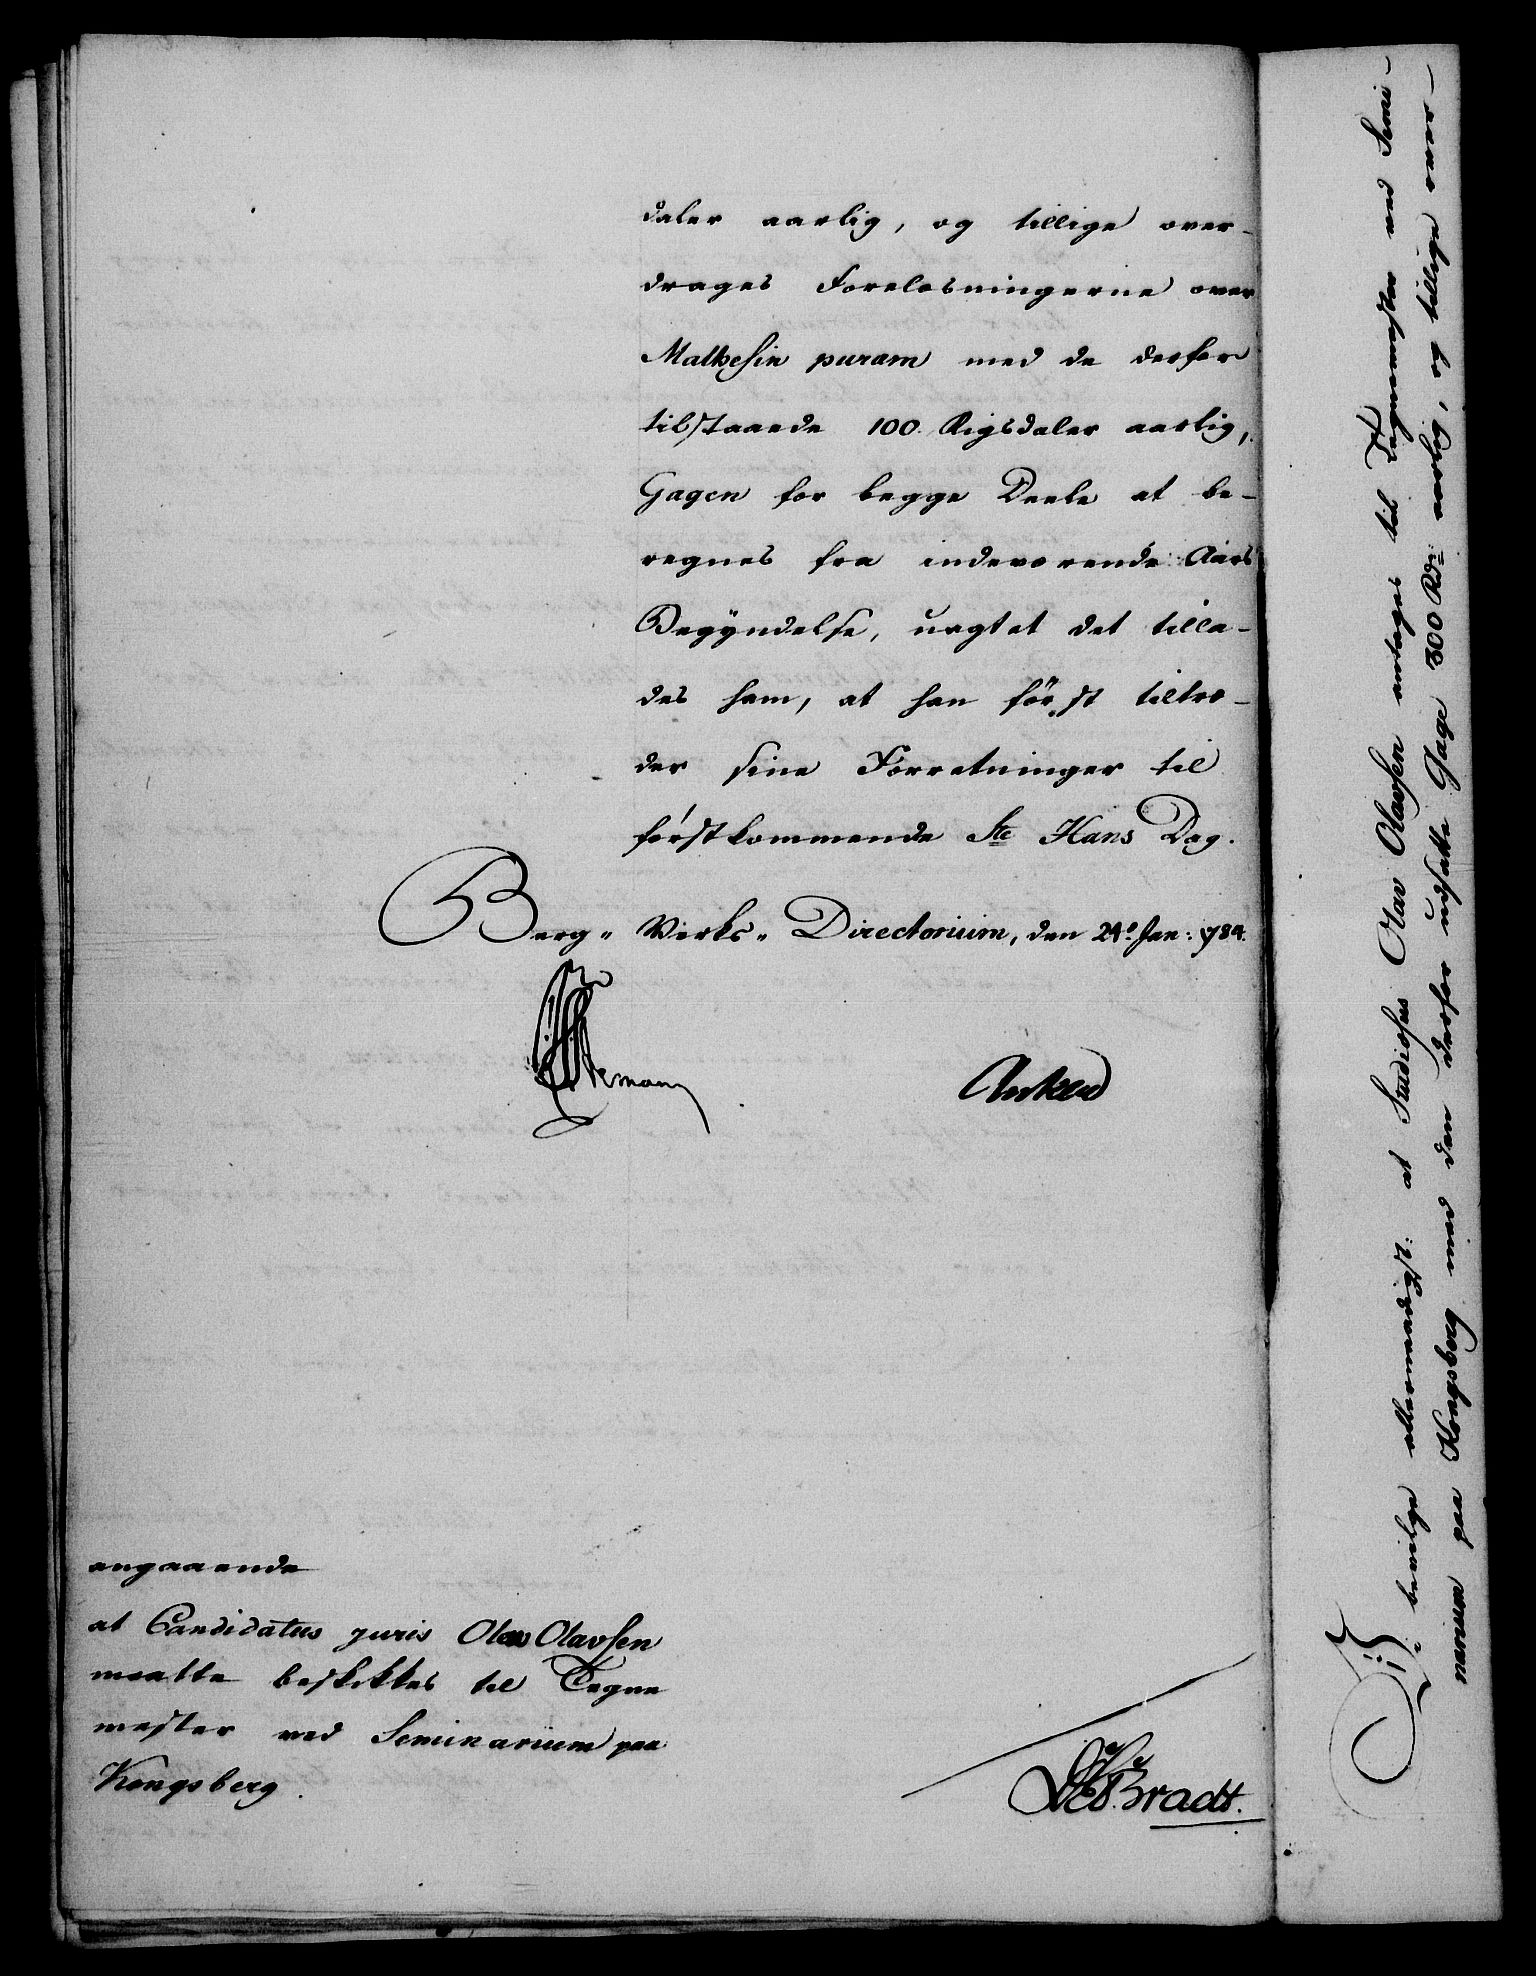 daler aarlig, og tillige over-
drages Forelæsningerne over
Mathesin puram med de derfor
tilstaaede 100 Rigsdaler aarlig,
Gagen for begge Deele at be-
regnes fra indeværende Aars
Begyndelse, uagtet det tilla-
des ham, at han først tiltræ-
der sine Forretninger til
førstkommende Ste Hans Dag.
Berg- Verks- Directorium, den 24de Jan: 1784.
Stemann
Anker
angaaende
at Candidatus juris Olav Olavsen
maatte beskikkes til Tegne
mester ved Seminarium paa
Kongsberg.
Bradt.
Vi bevilge allernaadigst: at Studiosus Olav Olavsen antages til Tegnemester ved Semi-
narium paa Kongsberg med den derfor udsatte Gage 300 Rdr aarlig, og tillige over-